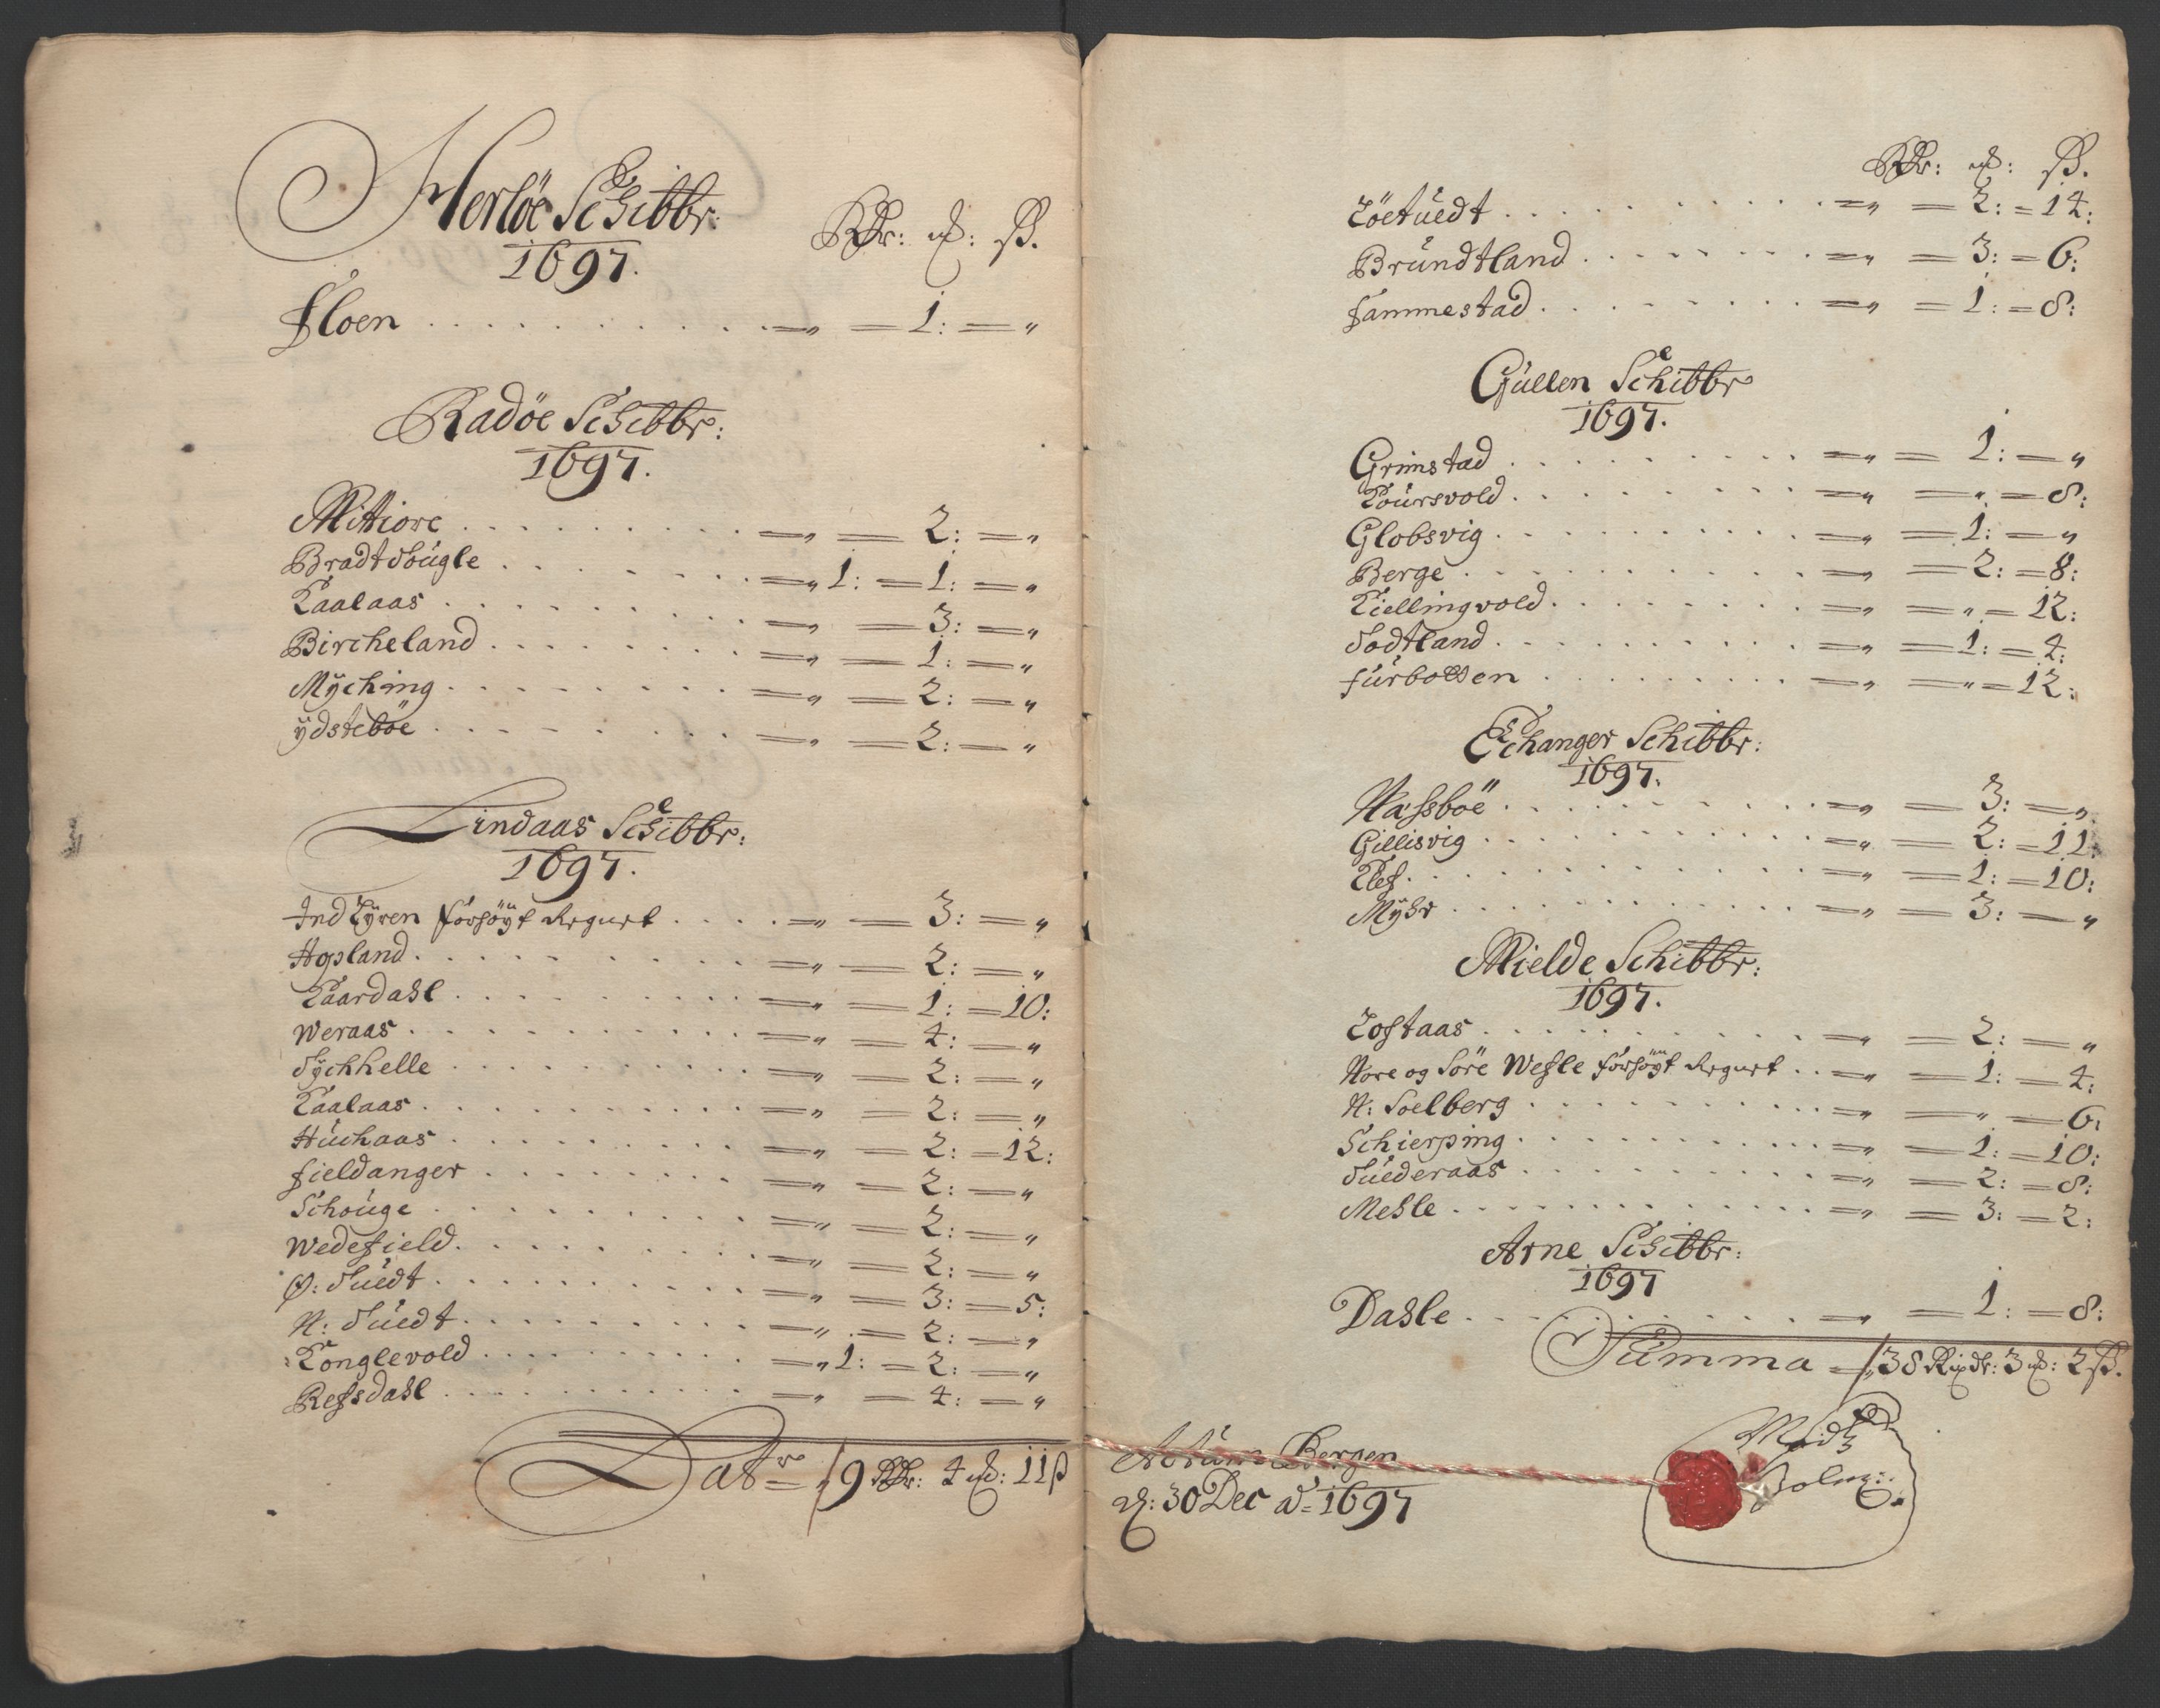 Herlöe Schibbr:
1697.
Rdr: ꝶ: ß.
Floen . . . . . . . . . . =„ = 1: =„
Radöe Schibbr:
1697.
Mittiore . . . . . . . . =„ = 2: =„
Bradtsougle . . . . . . . =„ 1: = 1: =„
Kaalaas . . . . . . . =„ = 3: =„
Bircheland . . . . . . . . =„ = 1: =„
Myching . . . . . . . . =„ = 2: =„
ydsteböe . . . . . . . =„ = 2: =„
Lindaas Schibbr:
1697.
Ind Kyren forhöyt . . . . =„ = 3: =„
Hopland . . . . . . . . . =„ = 2: =„
Kaardahl . . . . . . . . =„ = 1: = 10:
Weraas . . . . . . . . . =„ = 4: =„
Sychhelle . . . . . . . . =„ = 2: =„
Kaalaas . . . . . . . . . =„ = 2: =„
Huchaas . . . . . . . . =„ = 2: = 12:
Fieldanger . . . . . . . =„ = 2: =„
Schouge . . . . . . . . =„ = 2: =„
Wedefield . . . . . . . . =„ = 2: =„
Ø: Tuedt . . . . . . . . =„ = 3: = 5:
N: Tuedt . . . . . . . . =„ = 2: =„
Konglevold . . . . . . . =„ 1: = 2: =„
Refsdahl . . . . . . . . =„ = 4: =„
Latr = 9 Rdr: 4 ꝶ: 11 ß
Rdr: ꝶ: ß.
Löetuedt . . . . . . . . . =„ = 2: = 14:
Brundtland . . . . . . . =„ = 3: = 6:
Fammestad . . . . . . . =„ = 1: = 8:
Gullen Schibbr
1697.
Grimstad . . . . . . . . =„ = 1: =„
Koursvold . . . . . . . =„ „ = 8:
Globsvig . . . . . . . . =„ = 1: =„
Berge . . . . . . . . . =„ = 2: = 8:
Kiellingvold . . . . . . . =„ =„ = 12:
Sodtland . . . . . . . . =„ = 1: = 4:
. . . . . . . . =„ =„ = 12:
Echanger Schibbr:
1697.
Nassböe . . . . . . . . =„ = 3: =„
Gillisvig . . . . . . . . =„ = 2: = 11:
. . . . . . . . . =„ = 1: = 10:
Myhr . . . . . . . . . =„ = 3: =„
Mielde Schibbr:
1697.
Loftaas . . . . . . . . =„ = 2: =„
Nore og Söre Wefle forhöyt . . =„ = 1: = 4:
N: Soelberg . . . . . . . =„ =„ = 6:
Schierping . . . . . . . =„ = 1: = 10:
Tuederaas . . . . . . . =„ = 2: = 8:
Mehle . . . . . . . . . =„ = 3: = 2:
Arne Schibbr:
1697
Dahle . . . . . . . . . =„ = 1: = 8:
Summa = 38 Rixdr: 3 ꝶ: 2 ß.
Actum Bergen
d: 30 Dec ao = 1697